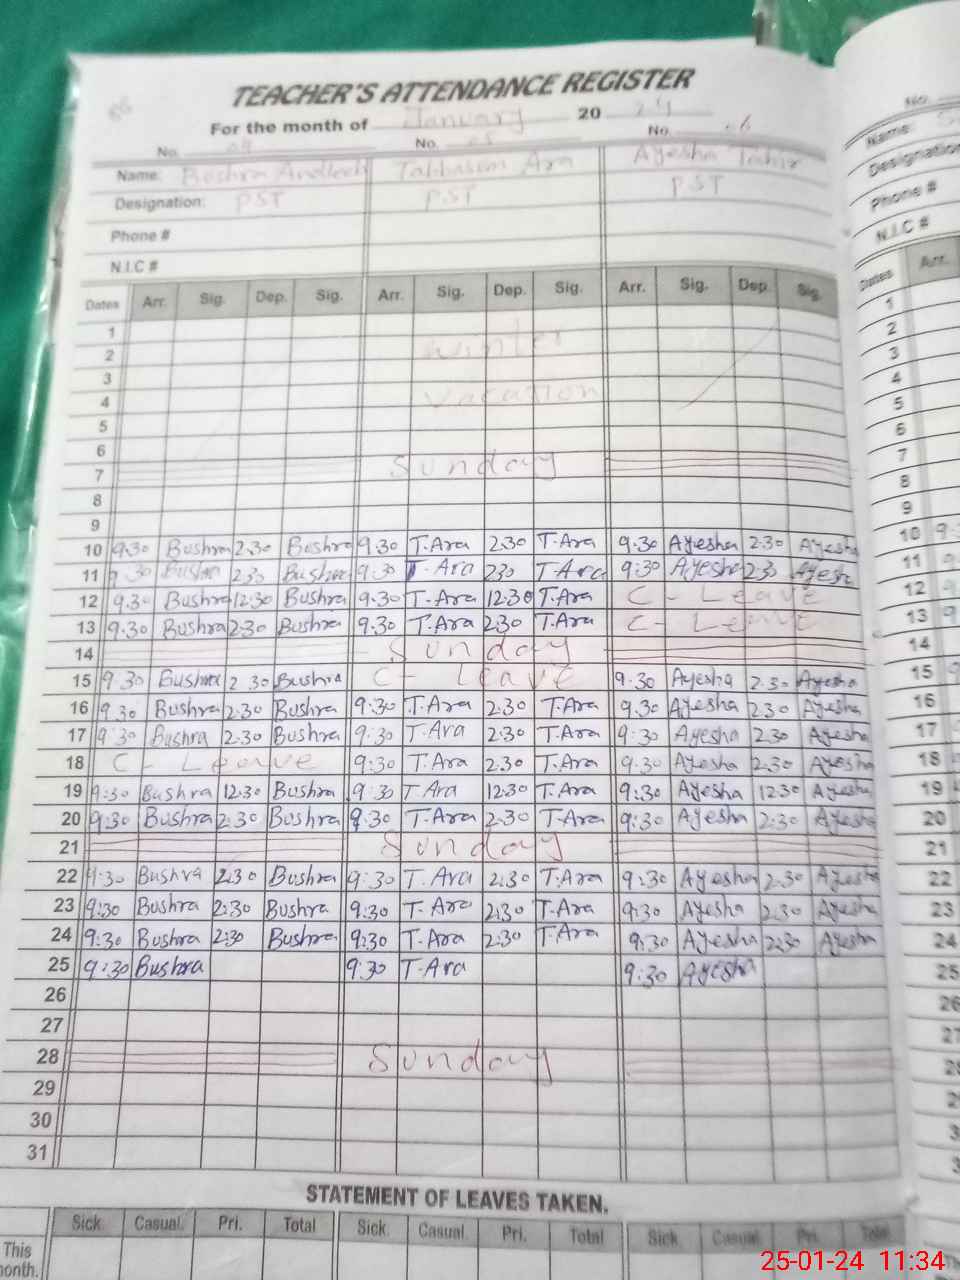 TEACHER'S ATTENDANCE REGISTER
For the month of January 20 24
No. 04 No. 05 No. 06
Name: Bushra Andleeb Tabbasum Ara Ayesha Tahir
Designation: PST PST PST
Phone #
N.I.C #
Dates Arr. Sig. Dep. Sig. Arr. Sig. Dep. Sig. Arr. Sig. Dep. Sig.
1
2 Winter
3
4 Vacation
5
6
7 Sunday
8
9
10 9.30 Bushra 2.30 Bushra 9.30 T.Ara 2.30 T.Ara 9.30 Ayesha 2.30 Ayesha
11 9.30 Bushra 2.30 Bushra 9.30 T.Ara 2.30 T.Ara 9.30 Ayesha 2.30 Ayesha
12 9.30 Bushra 12.30 Bushra 9.30 T.Ara 12.30 T.Ara C - Leave
13 9.30 Bushra 2.30 Bushra 9.30 T.Ara 2.30 T.Ara C - Leave
14 Sunday
15 9.30 Bushra 2.30 Bushra C - Leave 9.30 Ayesha 2.30 Ayesha
16 9.30 Bushra 2.30 Bushra 9.30 T.Ara 2.30 T.Ara 9.30 Ayesha 2.30 Ayesha
17 9.30 Bushra 2.30 Bushra 9:30 T.Ara 2.30 T.Ara 9:30 Ayesha 2.30 Ayesha
18 C - Leave 9:30 T.Ara 2.30 T.Ara 9.30 Ayesha 2.30 Ayesha
19 9:30 Bushra 12:30 Bushra 9:30 T.Ara 12.30 T.Ara 9:30 Ayesha 12.30 Ayesha
20 9:30 Bushra 2:30 Bushra 9:30 T.Ara 2:30 T.Ara 9:30 Ayesha 2:30 Ayesha
21 Sunday
22 9:30 Bushra 2:30 Bushra 9:30 T.Ara 2:30 T.Ara 9:30 Ayesha 2.30 Ayesha
23 9:30 Bushra 2:30 Bushra 9:30 T.Ara 2:30 T.Ara 9:30 Ayesha 2.30 Ayesha
24 9:30 Bushra 2:30 Bushra 9:30 T.Ara 2:30 T.Ara 9:30 Ayesha 2:30 Ayesha
25 9:30 Bushra 9:30 T.Ara 9:30 Ayesha
26
27
28 Sunday
29
30
31
STATEMENT OF LEAVES TAKEN.
Sick. Casual. Pri. Total Sick. Casual. Pri. Total Sick. Casual. Pri. Total
This
month.
No.
Name:
Designation
Phone #
N.I.C #
Dates Arr.
1
2
3
4
5
6
7
8
9
10
11
12
13
14
15
16
17
18
19
20
21
22
23
24
25
26
27
25-01-24 11:34